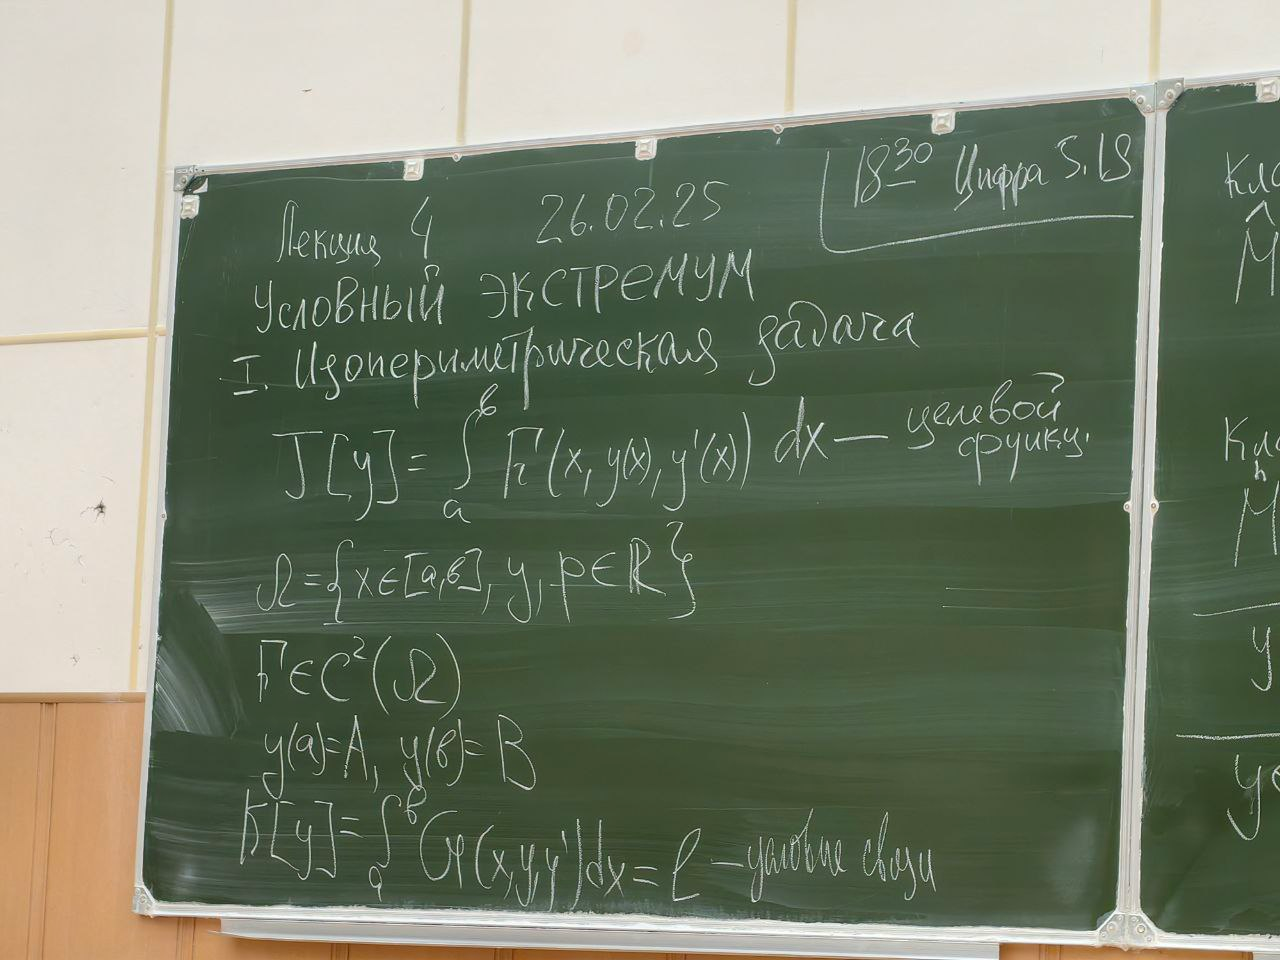 18³⁰ Цифра 5.18
Лекция 4 26.02.25
Условный экстремум
I. Изопериметрическая задача
J[y] = ∫ₐᵇ F(x, y(x), y'(x)) dx — целевой функц.
Ω = {x∈[a,b], y, p∈ℝ}
F∈C²(Ω)
y(a)=A, y(b)=B
K[y] = ∫ₐᵇ G(x,y,y')dx = ℓ — условие связи
Кла
M̂
Кла
M
y
y